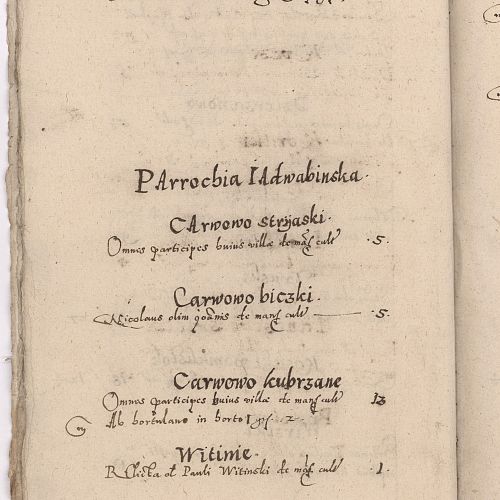 Parrochia Iadwabinska.
Carwowo stryaski.
Omnes participes huius villæ de mans cult .5.
Carwowo biczki.
Nicolaus olim Joānis de mans cult .5.
Carwowo kubrzane
Omnes participes huius villæ de mans cult 13
Ab hortulano in horto 1 gs 2
Witinie.
Relicta ol Pauli Witinski de mas cult .1.